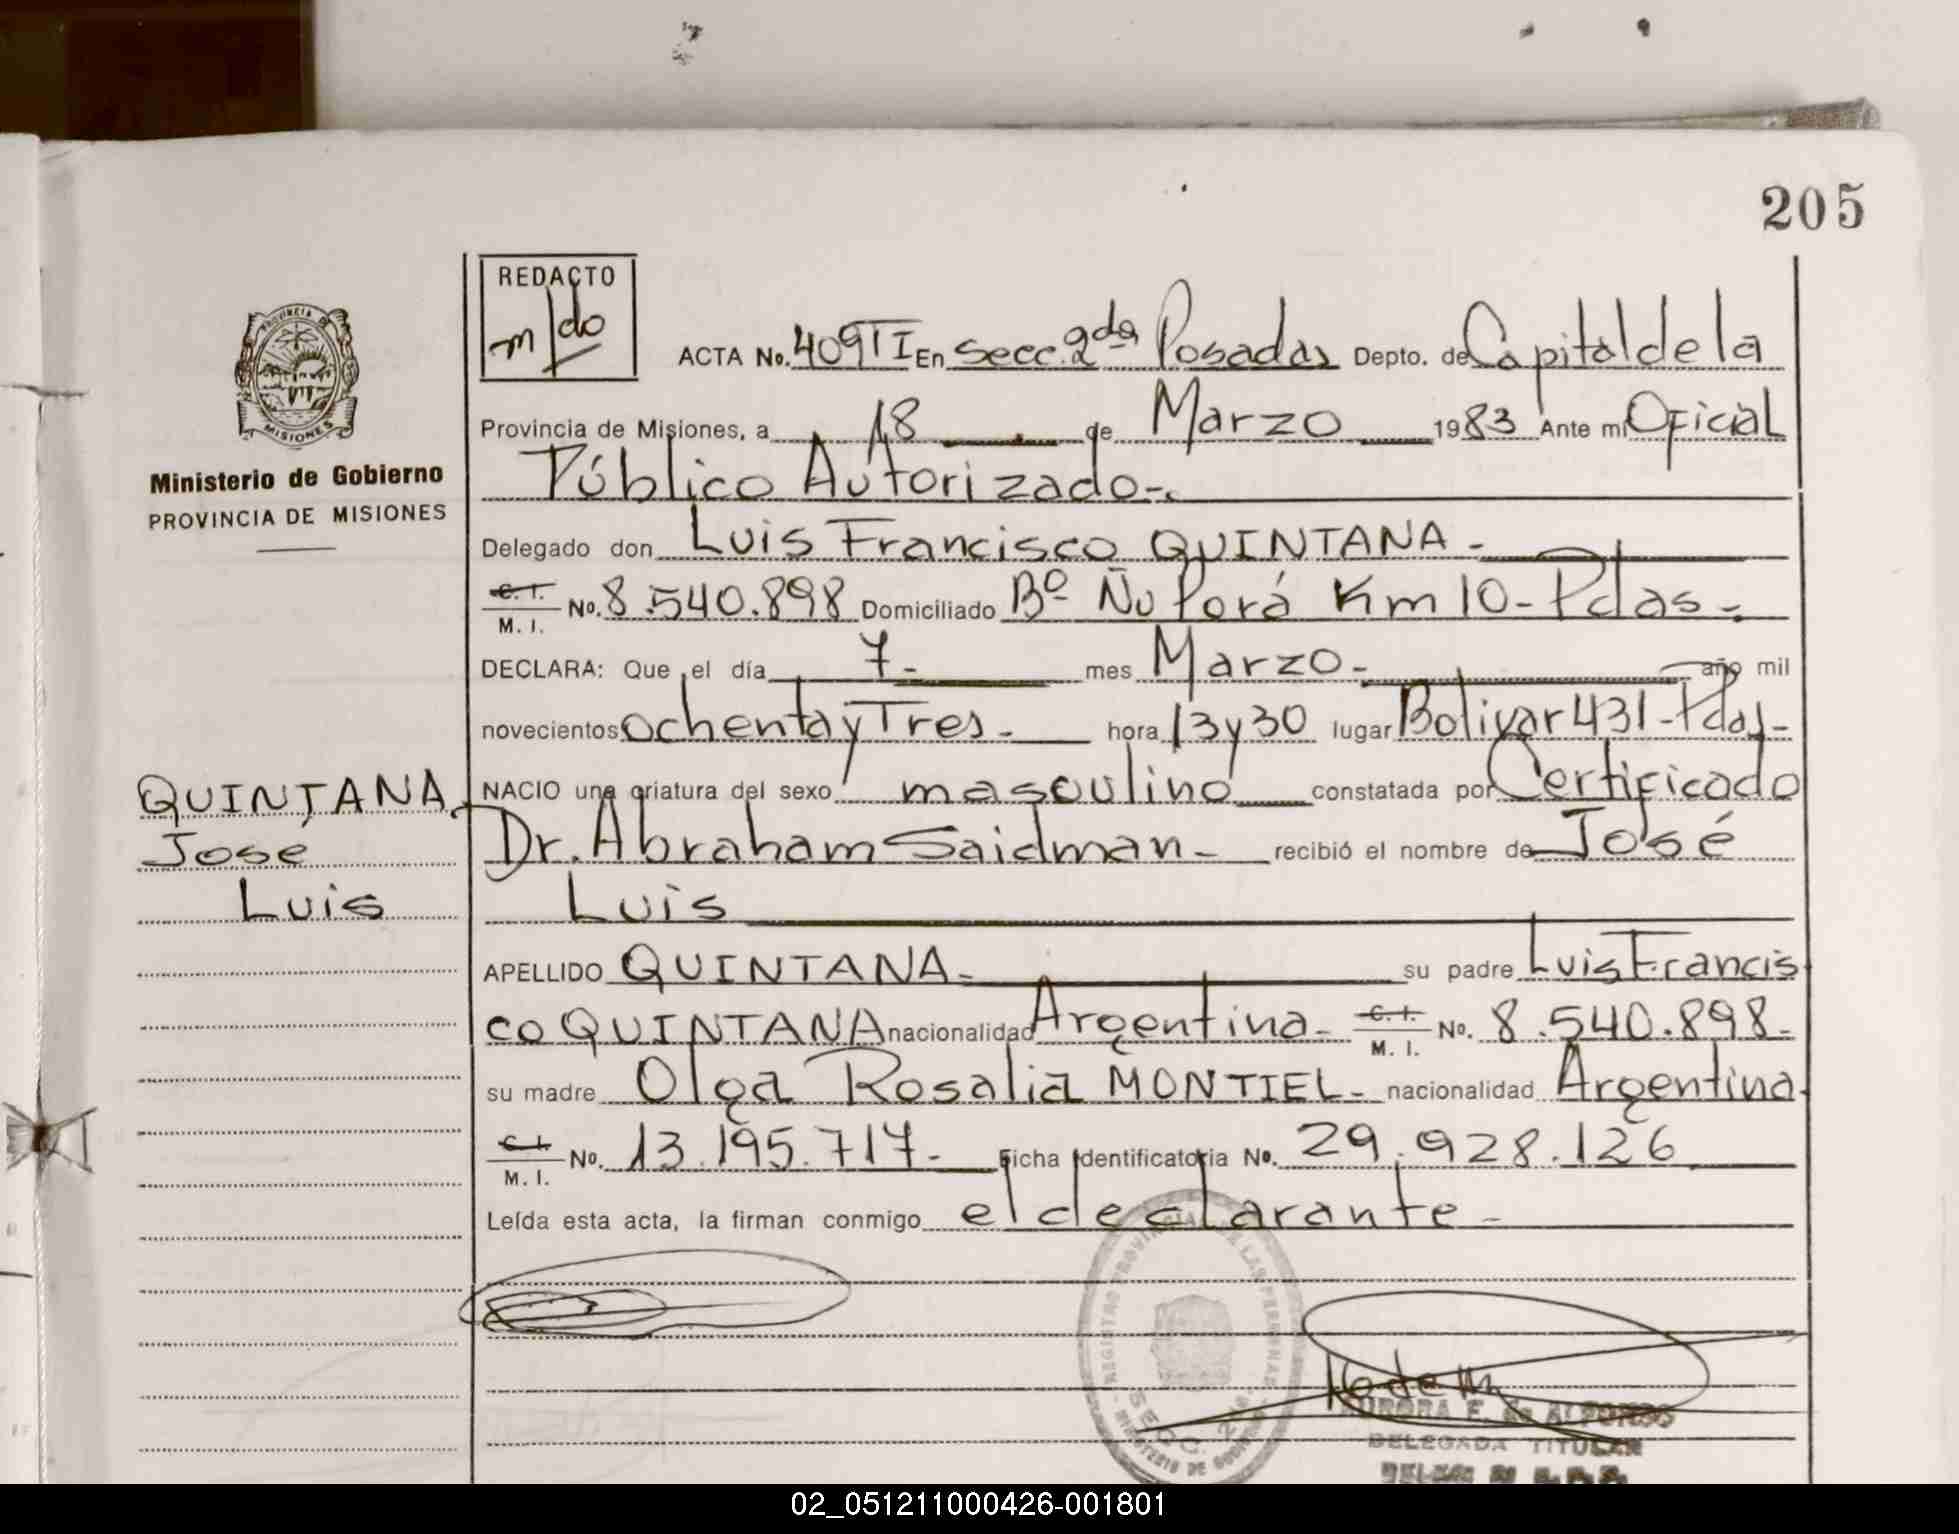 205
REDACTO
m/do
ACTA No. 409 T I En secc. 2da Posadas Depto. de Capital de la
PROVINCIA DE
MISIONES
Provincia de Misiones, a 18 de Marzo 1983 Ante mi Oficial
Ministerio de Gobierno
PROVINCIA DE MISIONES
Público Autorizado-.
Delegado don Luis Francisco QUINTANA-
C. I.
M. I. No. 8.540.898 Domiciliado Bº Ñu Porá Km 10- Pdas-.
DECLARA: Que el día 7- mes Marzo- año mil
novecientos ochenta y Tres- hora 13 y 30 lugar Bolivar 431-Pdas-
QUINTANA
José
Luis
NACIO una criatura del sexo masculino constatada por Certificado
Dr. Abraham Saidman- recibió el nombre de José
Luis
APELLIDO QUINTANA- su padre Luis Francis
co QUINTANA nacionalidad Argentina- C. I.
M. I. No. 8.540.898-
su madre Olga Rosalia MONTIEL- nacionalidad Argentina-
C. I.
M. I. No. 13.195.717- Ficha Identificatoria No. 29.928.126
Leída esta acta, la firman conmigo el declarante-
REGISTRO PROVINCIAL DE LAS PERSONAS
SECC. 2da
MINISTERIO DE GOBIERNO
AURORA E. de ALFONSO
DELEGADA TITULAR
02_051211000426-001801